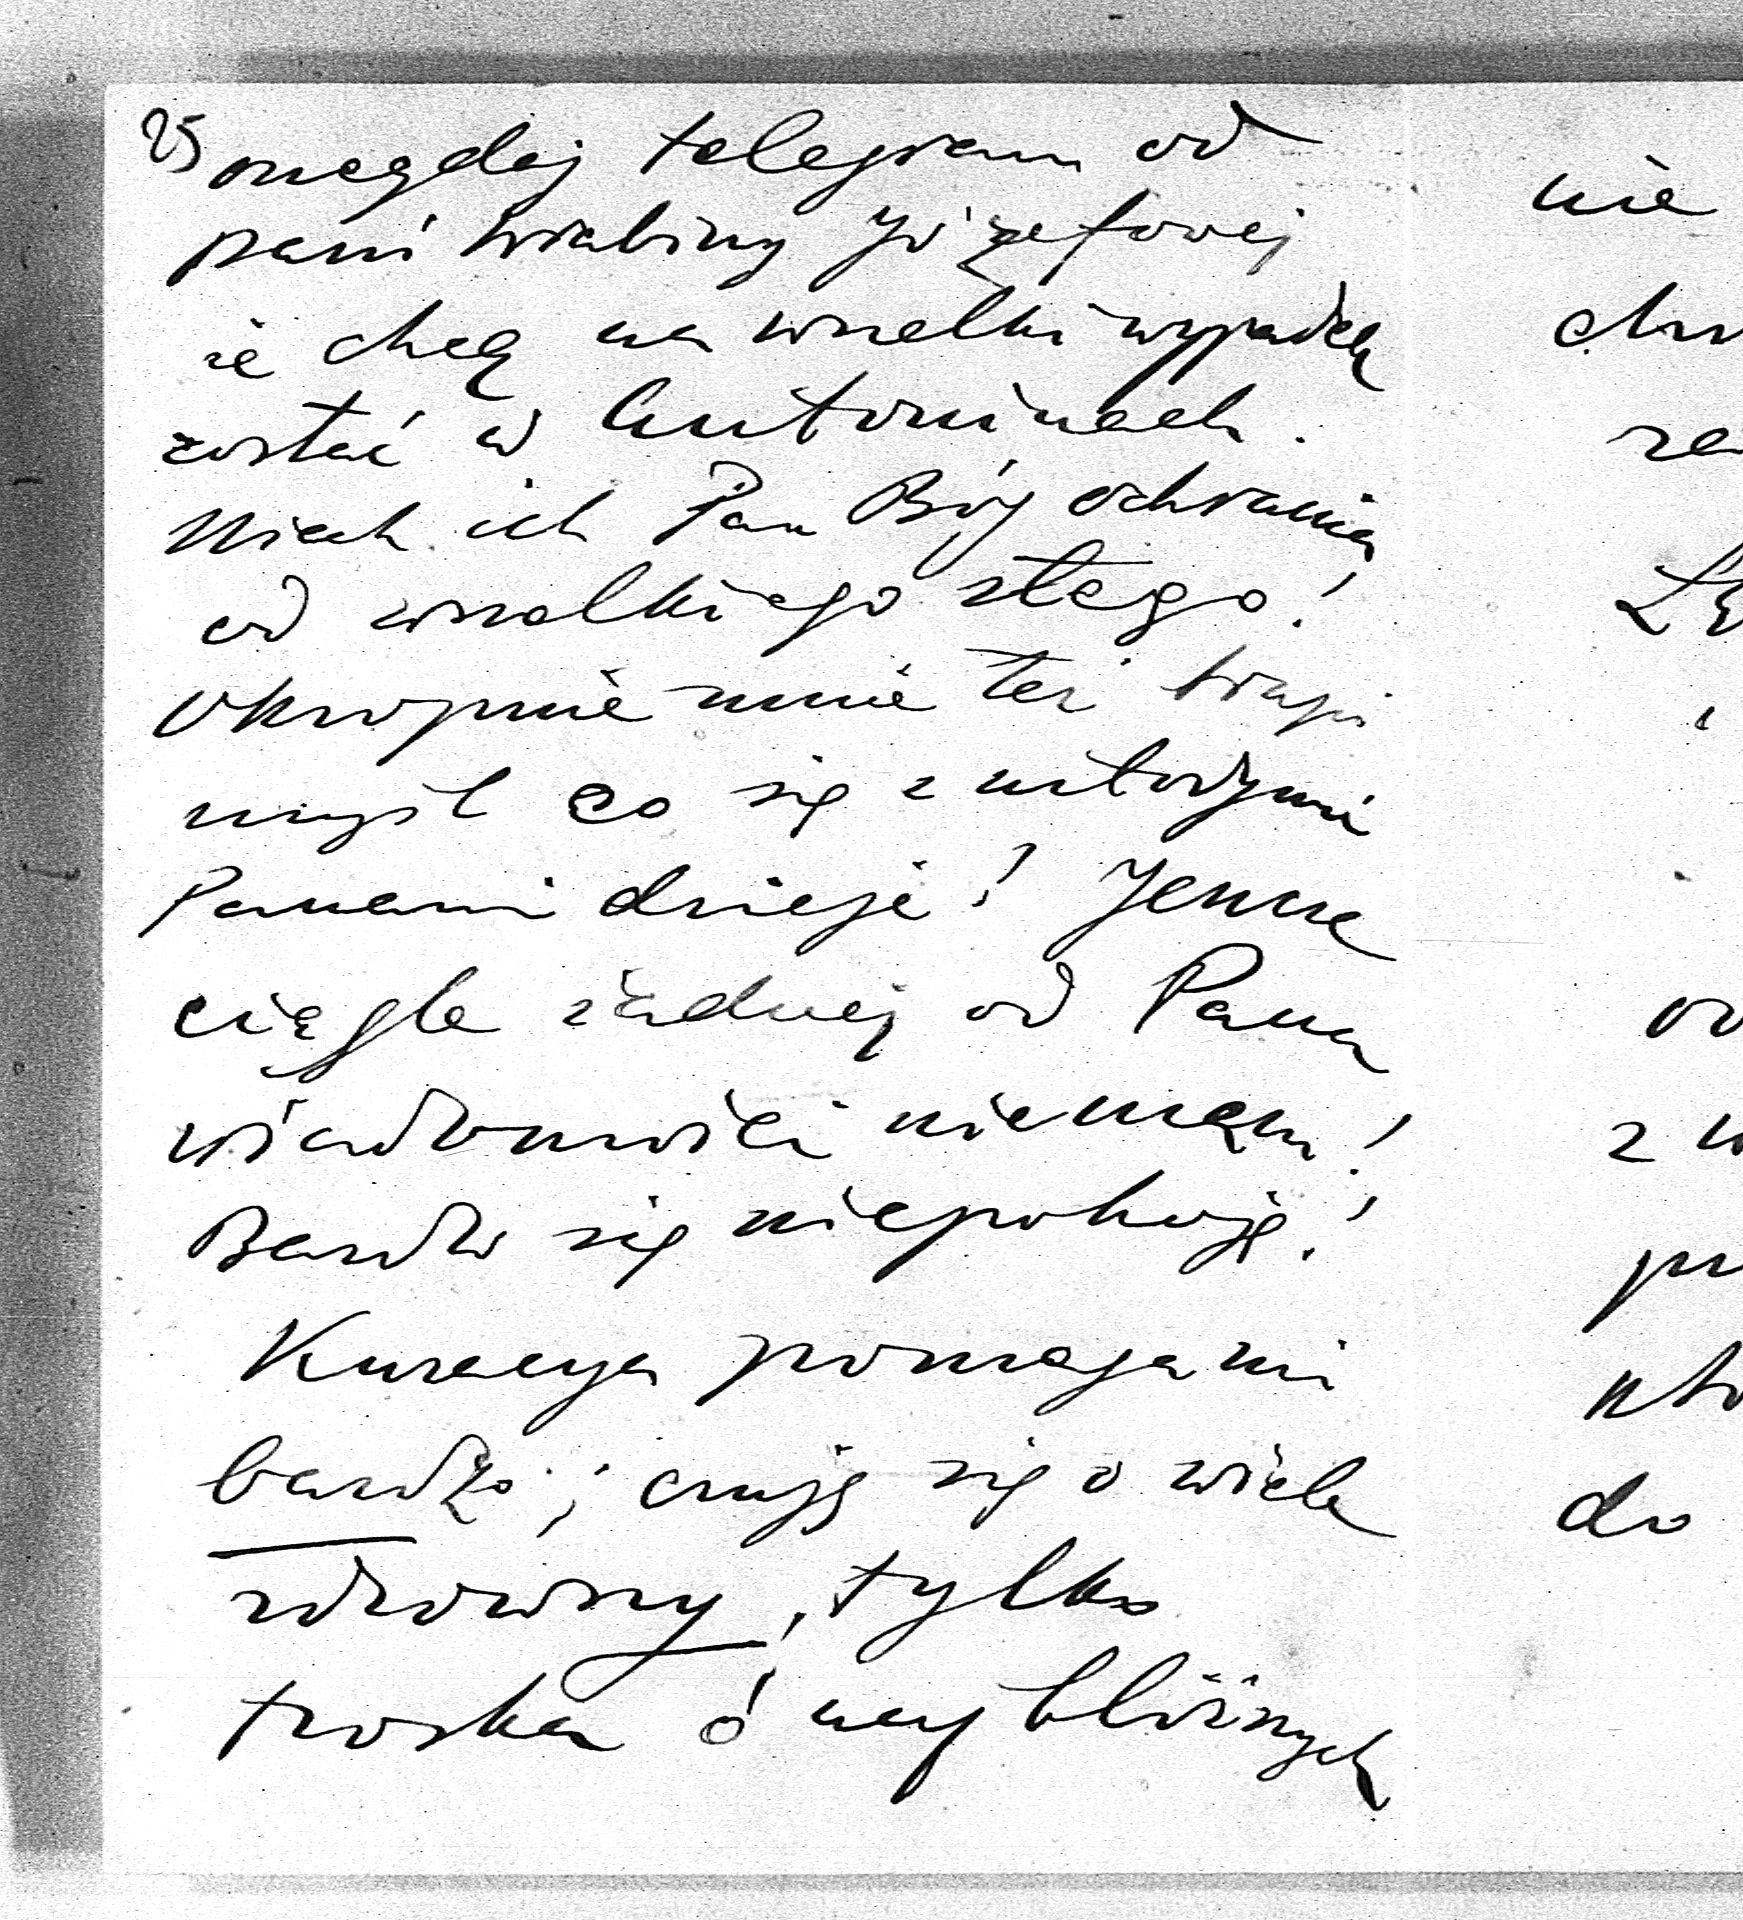 25
onegdaj telegram od
pani hrabiny Józefowej
że chcą na wszelki wypadek
zostać w Antoninach.
Niech ich Pan Bóg ochrania
od wszelkiego złego!
Okropnie mnie też trapi
myśl co się z młodymi
Panami dzieje! Jeszcze
ciągle żadnej od Pana
wiadomości nie mam!
Bardzo się niepokoję!
Kuracya pomaga mi
bardzo; czuję się o wiele
zdrowszy, tylko
troska o najbliższych
nie
z w
do